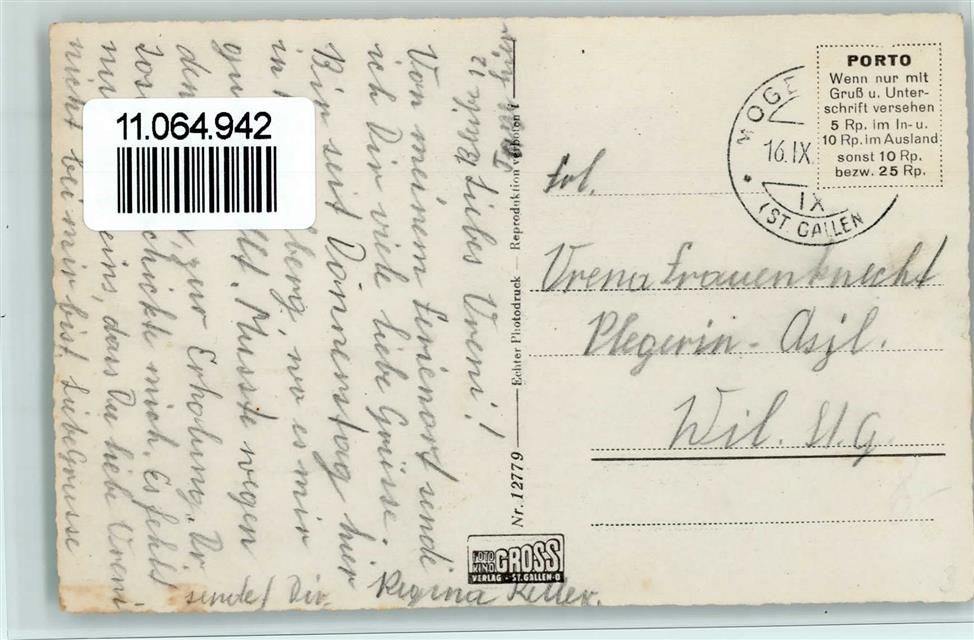 11.064.942
Liebes Vreni!
Von meinem Ferienort sende
ich Dir viele liebe Grüsse.
Bin seit Donnerstag hier
in berg, wo es mir
gu llt. Musste wegen
den zur Erholung. Dr.
Zos chickte mich. Es fehlt
nur eins, das Du liebe Vreni
nicht bei mir bist. Liebe Grüsse
sendet Dir Regina Keller.
Nr. 12779 Echter Photodruck — Reproduktion verboten
FOTO KINO GROSS
VERLAG · ST. GALLEN-O
MOGE
16.IX.
IX
(ST. GALLEN
PORTO
Wenn nur mit
Gruß u. Unter-
schrift versehen
5 Rp. im In- u.
10 Rp. im Ausland
sonst 10 Rp.
bezw. 25 Rp.
Frl.
Vrena Frauenknecht
Plegerin - Asyl.
Wil. St. G.